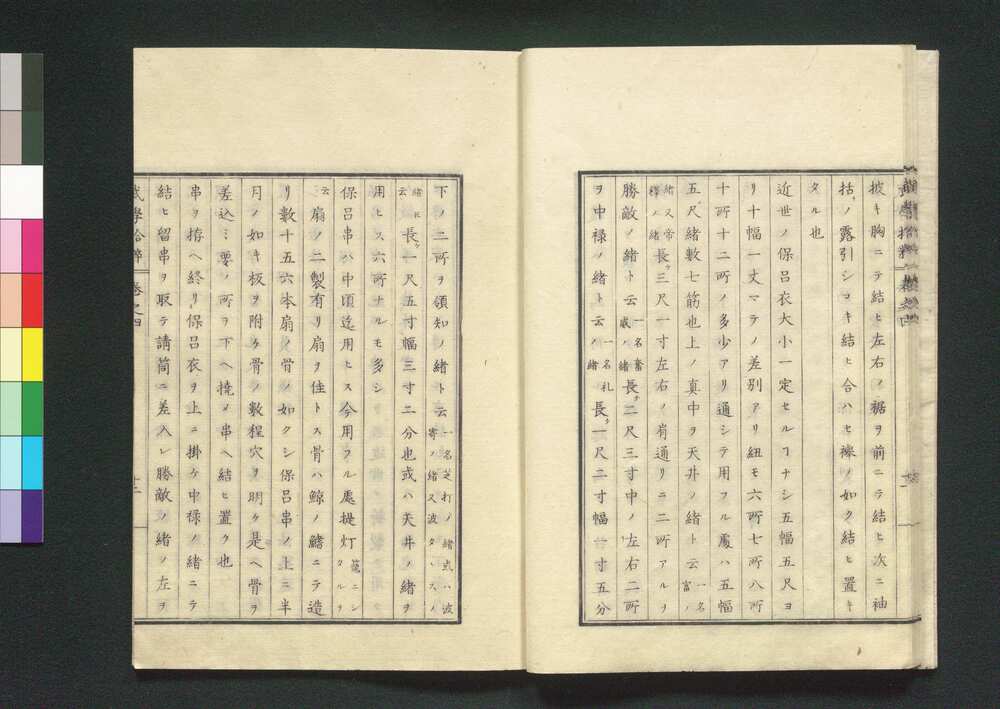 披キ胸ニテ結ヒ左右ノ裾ヲ前ニテ結ヒ次ニ袖
括ノ露引シコキ結ヒ合ハセ襷ノ如ク結ヒ置キ
タル也
近世ノ保呂衣大小一定セルヿナシ五幅五尺ヨ
リ十幅一丈マテノ差別アリ紐モ六所七所八所
十所十二所ノ多少アリ通シテ用フル處ハ五幅
五尺緒數七筋也上ノ真中ヲ天井ノ緒ト云一名富ノ
緒又帝釋ノ緒長サ三尺一寸左右ノ肩通リニ二所アルヲ
勝敵ノ緒ト云一名奮威ノ緒長サ二尺三寸中ノ左右二所
ヲ中禄ノ緒ト云一名札ノ緒長サ一尺二寸幅一寸五分
下ノ二所ヲ領知ノ緒ト云一名芝打ノ緒或ハ波寄ノ緒又波タヽスノ
緒ト云長サ一尺五寸幅三寸二分也或ハ天井ノ緒ヲ
用ヒス六所ナルモ多シ
保呂串ハ中頃迄用ヒス今用フル處提灯籠ニシタルヲ
云扇ノ二製有リ扇ヲ佳トス骨ハ鯨ノ鰭ニテ造
リ數十五六本扇ノ骨ノ如クシ保呂串ノ上ニ半
月ノ如キ板ヲ附ケ骨ノ數程穴ヲ明ケ是ヘ骨ヲ
差込ミ要ノ所ヲ下ヘ撓メ串ヘ結ヒ置ク也
串ヲ拵ヘ終リ保呂衣ヲ上ニ掛ケ中禄ノ緒ニテ
結ヒ留串ヲ取テ請筒ニ差入レ勝敵ノ緒ノ左ヲ
武學拾粹 卷之四 十二